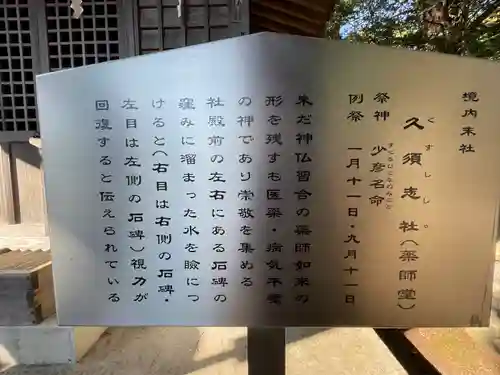 境内末社
久須志社(薬師堂)
くすししゃ
祭神 少彦名命
すくなひこなのみこと
例祭 一月十一日・九月十一日
未だ神仏習合の薬師如来の
形を残すも医薬・病気平癒
の神であり崇敬を集める
社殿前の左右にある石碑の
窪みに溜まった水を瞼につ
けると(右目は右側の石碑・
左目は左側の石碑)視力が
回復すると伝えられている